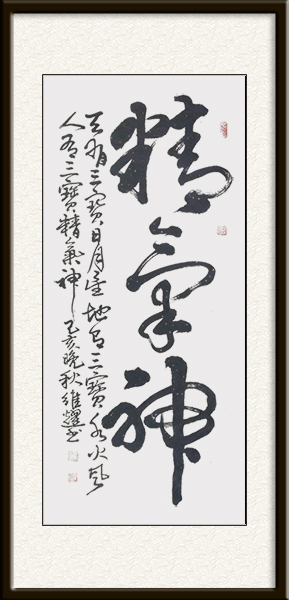 精氣神
天有三寶日月星地有三寶水火風
人有三寶精氣神乙亥晚秋維耀書